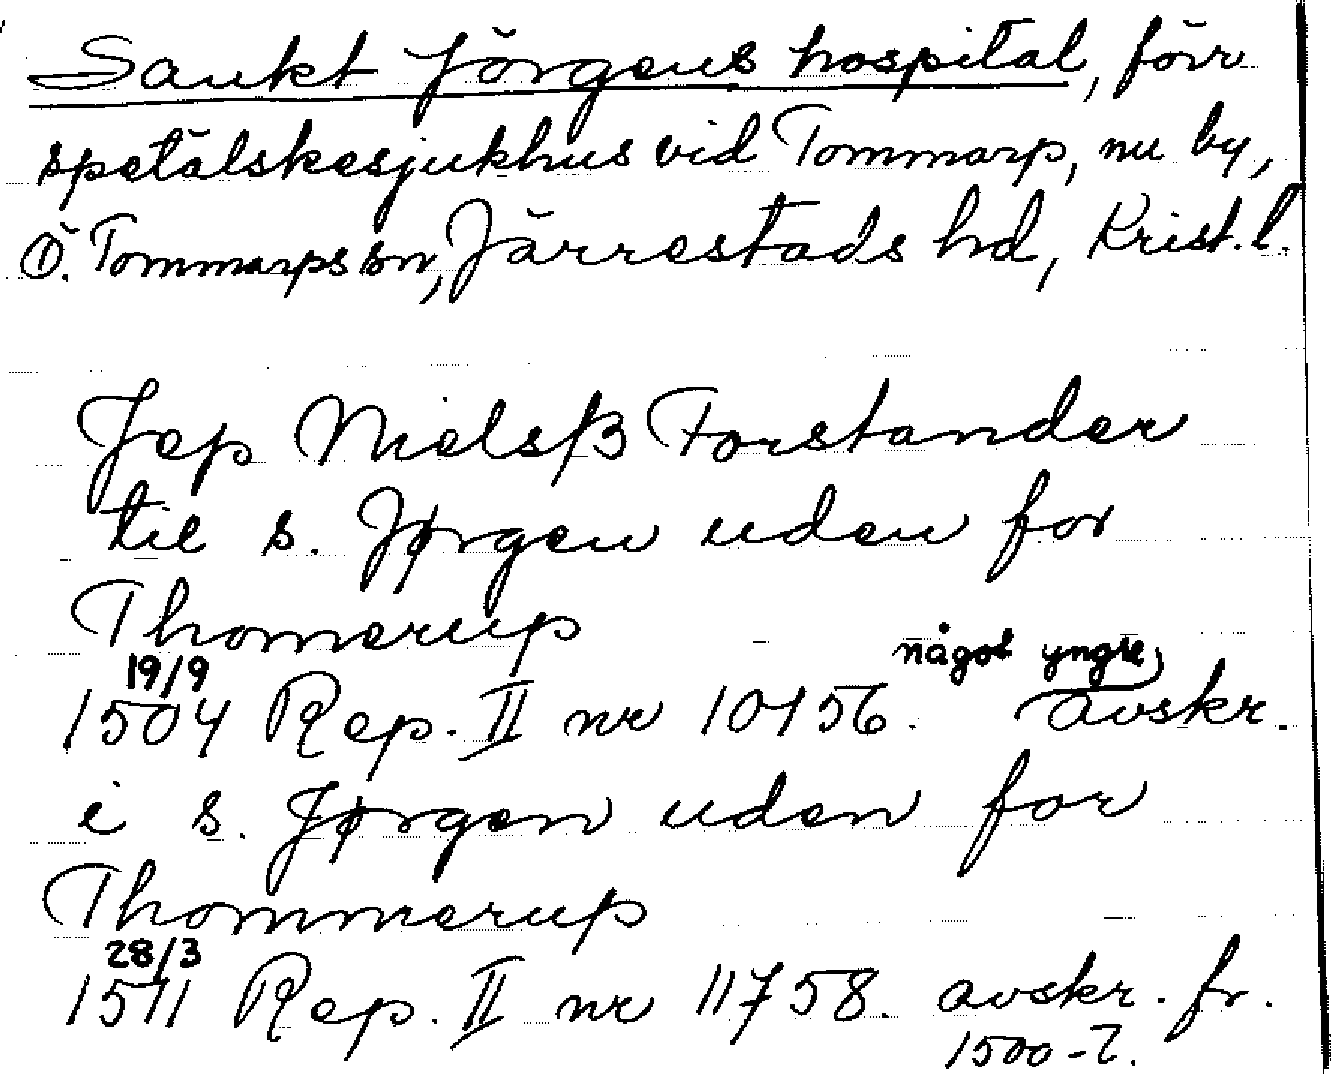 Sankt Jörgens hospital, förr
spetälskesjukhus vid Tommarp, nu by,
Ö. Tommarps sn, Järrestads hd, Krist. l.
Jep Nielsß Forstander
til s. Jørgen uden for
Thomerup
19/9
1504 Rep. II nr 10156. något yngre avskr.
i s. Jørgen uden for
Thommerup
28/3
1511 Rep. II nr 11758. avskr. fr.
1500-t.